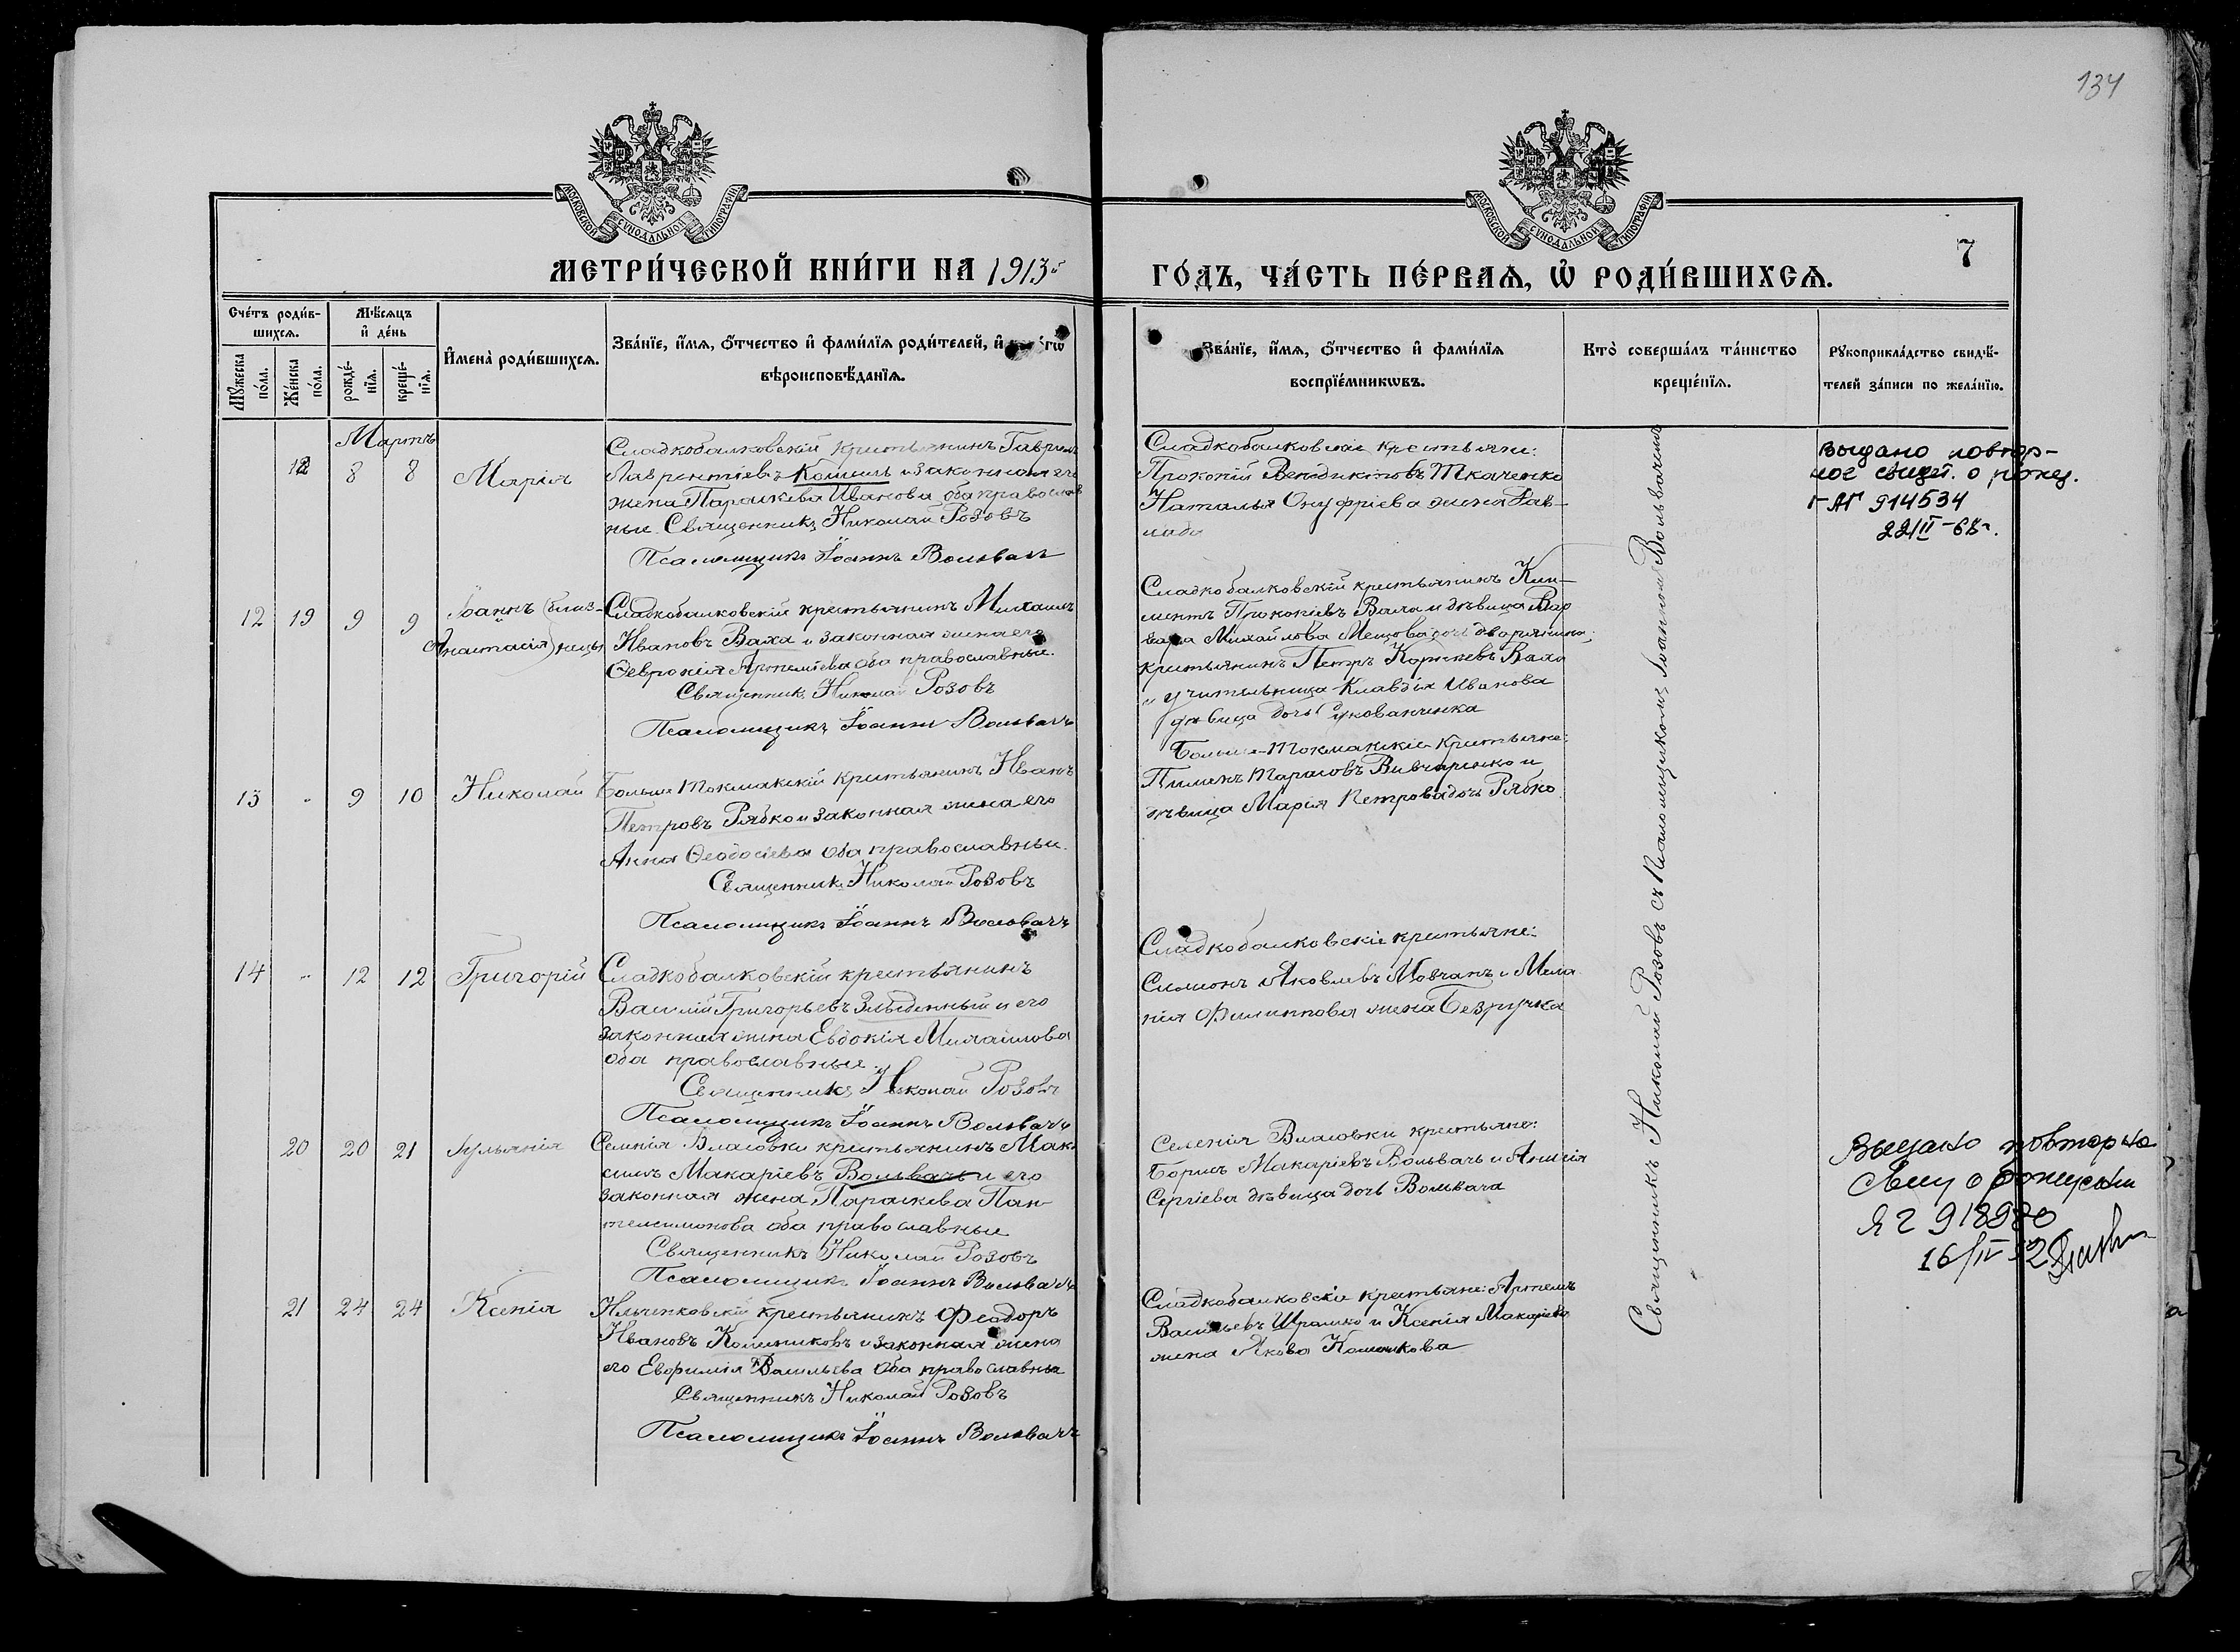 134
МОСКОВСКОЙ СѴНОДАЛЬНОЙ ТИПОГРАФІИ
МОСКОВСКОЙ СѴНОДАЛЬНОЙ ТИПОГРАФІИ
7
МЕТРИ́ЧЕСКОЙ КНИ́ГИ НА 1913й
ГО́ДЪ, ЧА́СТЬ ПЕ́РВАѦ, Ѡ҆ РОДИ́ВШИХСѦ.
Сче́тъ роди́в-
шихсѧ.
Мѣ́сѧцъ
и҆ де́нь
Мꙋ́жеска по́ла.
Же́нска по́ла.
рожде́-нїѧ.
креще́-нїѧ.
И҆мена̀ роди́вшихсѧ.
Зва́нїе, и҆́мѧ, ѻ҆́тчество и҆ фами́лїѧ роди́телей, и҆
вѣроисповѣ́данїѧ.
Зва́нїе, и҆́мѧ, ѻ҆́тчество и҆ фами́лїѧ
воспрїе́мникѡвъ.
Кто̀ соверша́лъ та́инство
креще́нїѧ.
Рꙋкоприкла́дство свидѣ́-
телей за́писи по жела́нїю.
Мартъ
18 8 8 Марія
Сладкобалковскій крестьянинъ Гавріилъ
Лаврентіевъ Кошель и законная его
жена Параскева Иванова оба православ
ные. Священникъ Николай Розовъ
Псаломщикъ Іоаннъ Вольвачъ
Сладкобалковскіе крестьяне:
Прокопій Венедиктовъ Ткаченко
Наталья Онуфріева жена Гав-
выдано повтор-
ное свидет. о рожд.
914534
22/II-
12 19 9 9 Іоаннъ (близ-
Анастасія) нецы
Сладкобалковскій крестьянинъ Михаилъ
Ивановъ Ваха и законная жена его
Февронія Артеміева оба православные.
Священникъ Николай Розовъ
Псаломщикъ Іоаннъ Вольвачъ
Сладкобалковскій крестьянинъ Кли-
ментъ Прокопіевъ Вала и дѣвица Вар
вара Михайлова дочь дворянина;
крестьянинъ Петръ Корнѣевъ Вала
и учительница Клавдія Иванова
дѣвица дочь
13 - 9 10 Николай
Больше Токмакскій крестьянинъ Иванъ
Петровъ Рябко и законная жена его
Анна Ѳеодосіева оба православные.
Священникъ Николай Розовъ
Псаломщикъ Іоаннъ Вольвачъ
Больше-Токмакскіе крестьяне:
Пименъ Тарасовъ Вивчаренко и
дѣвица Марія Петрова дочь Рябко
14 - 12 12 Григорій
Сладкобалковскій крестьянинъ
Василій Григорьевъ Злыденный и его
законная жена Евдокія Михаилова
оба православные.
Священникъ Николай Розовъ
Псаломщикъ Іоаннъ Вольвачъ
Сладкобалковскіе крестьяне:
Симеонъ Яковлевъ Мовчанъ и Мела
нія Филиппова жена Безручка
20 20 21 Іуліанія
Селенія Власовки крестьянинъ Мак-
симъ Макаріевъ Вольвачъ и его
законная жена Параскева Пан-
телеимонова оба православные
Священникъ Николай Розовъ
Псаломщикъ Іоаннъ Вольвачъ
Селенія Власовки крестьяне:
Борисъ Макаріевъ Вольвачъ и Анисія
Сергіева дѣвица дочь Вольвача
Выдано повторно
о рождении
16/IV
21 24 24 Ксенія
Ильченковскій крестьянинъ Феодоръ
Ивановъ Колесниковъ и законная жена
его Евфимія Васильева оба православные
Священникъ Николай Розовъ
Псаломщикъ Іоаннъ Вольвачъ
Сладкобалковскіе крестьяне: Артемъ
Васильевъ Шрамко и Ксенія Макаріева
жена Якова
Священникъ Николай Розовъ съ Псаломщикомъ Іоанномъ Вольвачемъ